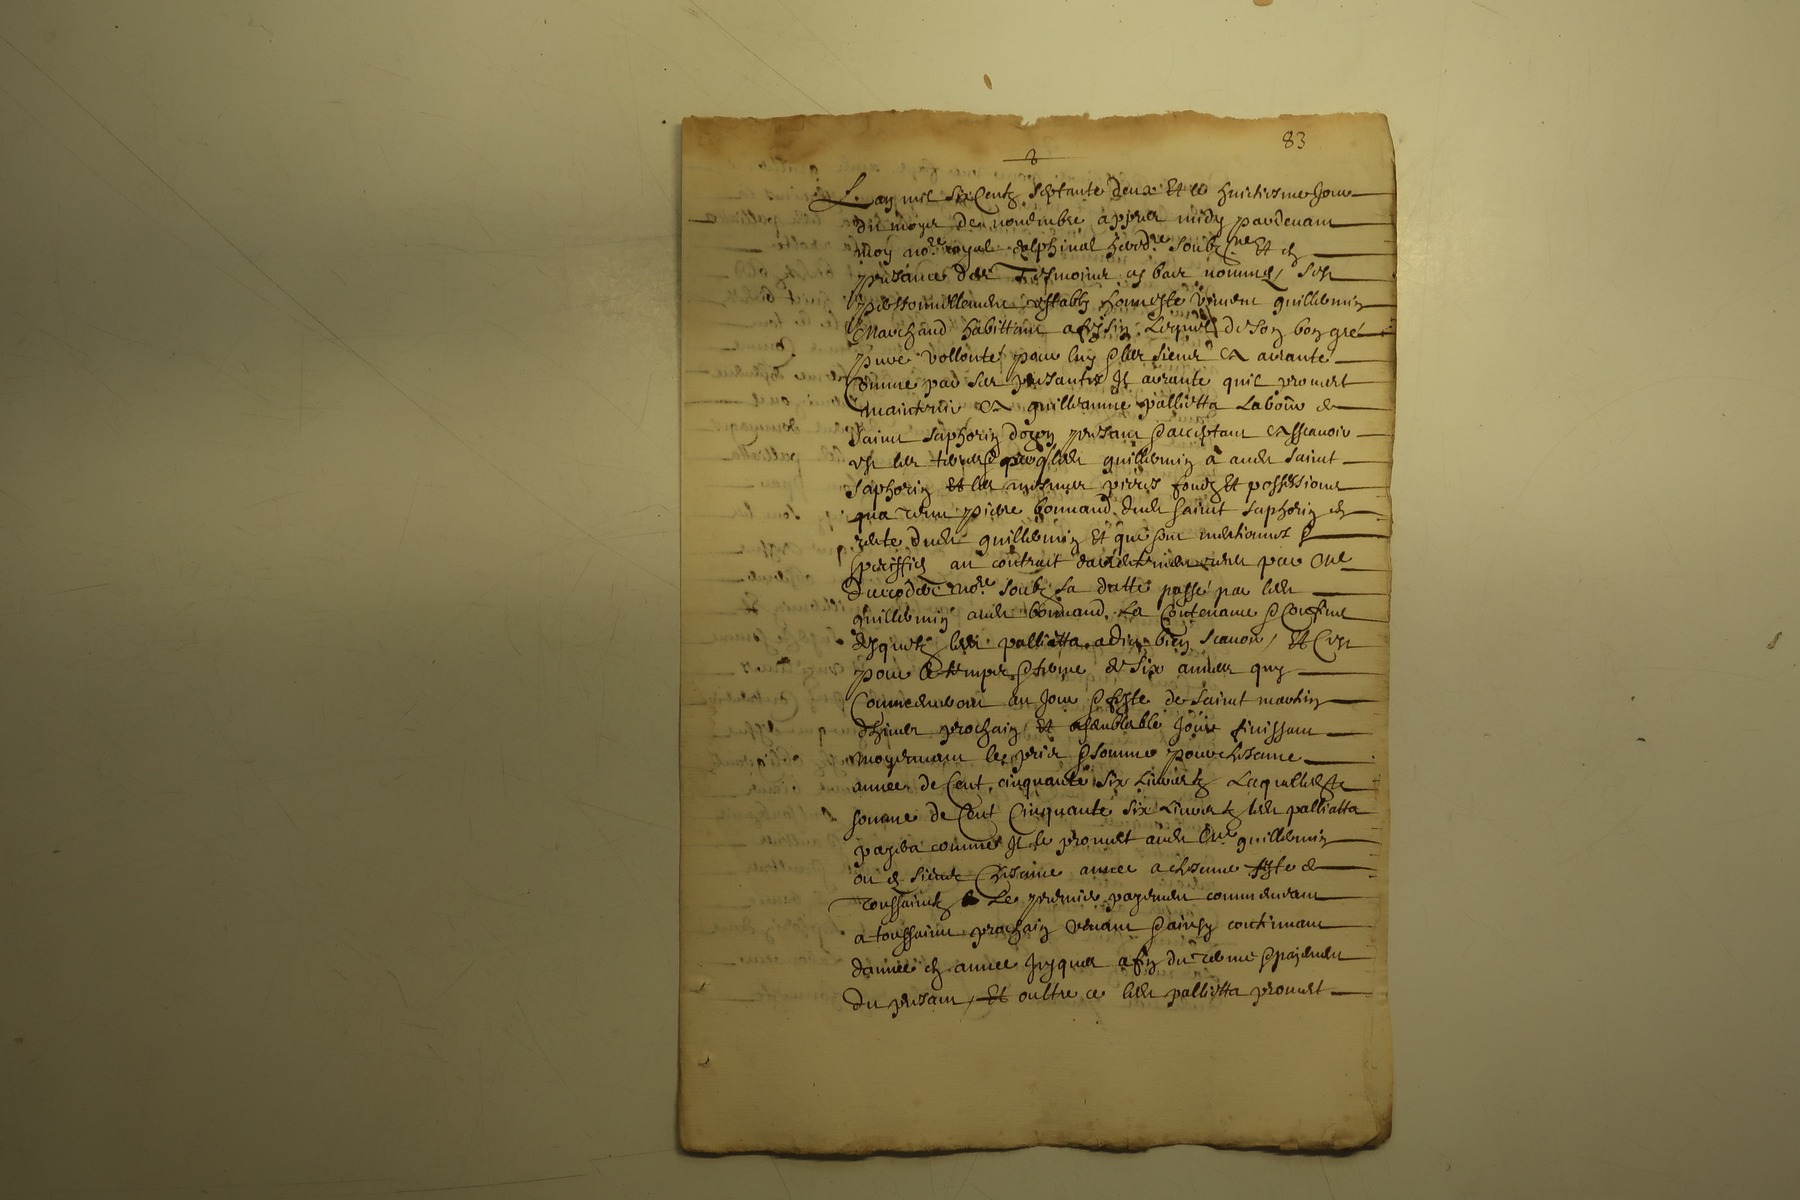 83
Lan mil six Centz septante deux Et le huictiesme Jour
du moys de novembre appres midy pardevant
moy no.re royal delphinal hered.re soubz.ne Et en
presance des Tesmoins cy bas nommes, sest
personnellement estably honneste Vincent guillermin
Marchand habittant a Lequel de son bon gré
pure vollonté pour luy & les siens a arranté
comme par ses presantes Il arrante quil promest
maintenir a guilleaume palliotta Laboure de
Saint Saphorin dozon presant & acceptant Assavoir
est les terres guillermin a audt saint
Saphorin Et les mesmes pieces fondz Et possessions
qua tenu piere bonnard dudt saint Saphorin en
rente dudt guillermin Et qui sont mentionnes &
speciffies au contrait par Me
no.re soubz sa datte passé par ledt
guillermin audt bonnard. La Contenance & Confins
desquels ledt palliotta a dict bien scavoir, Et Cest
pour le temps & terme de six annees quy
Commenceront au Jour & feste de saint martin
dhiver prochain Et a semblable Jour finissant
moyennant le prix & somme pour chascune
annee de Cent cinquante six Livres Laquelle
somme de Cent Cinquante six Livres ledt palliotta
payera comme Il le promet audt guillermin
ou es siens Chascune annee a chascune feste de
Toussaintz Le premier payement commencant
a toussaint prochain venant & ainsy continuant
dannee en annee Jusques a fin du terme & payement
du presant, Et oultre ce ledt palliotta promest